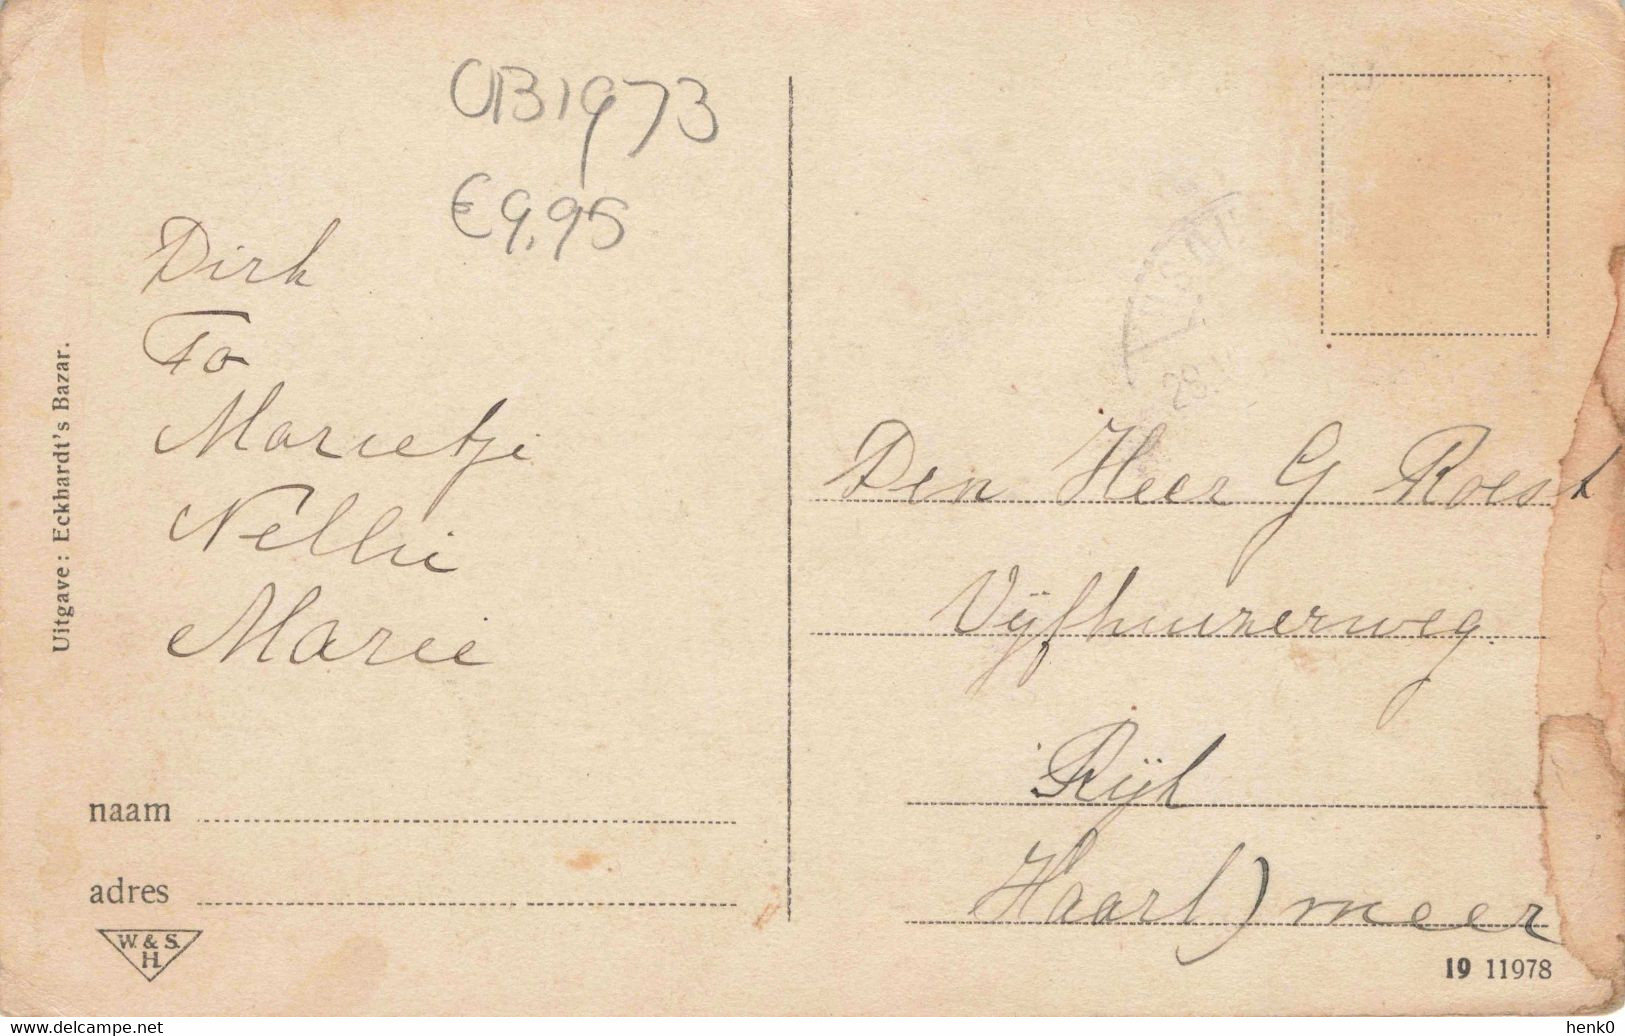 UB1973
€9,95
Dirk
To
Marietje
Nellie
Marie
Uitgave: Eckhardt's Bazar.
naam
adres
W. & S.
H.
28.
Den Heer G Roest
Vijfhuizerweg.
Rijk
Haarl) meer
19 11978
www.delcampe.net
henk0